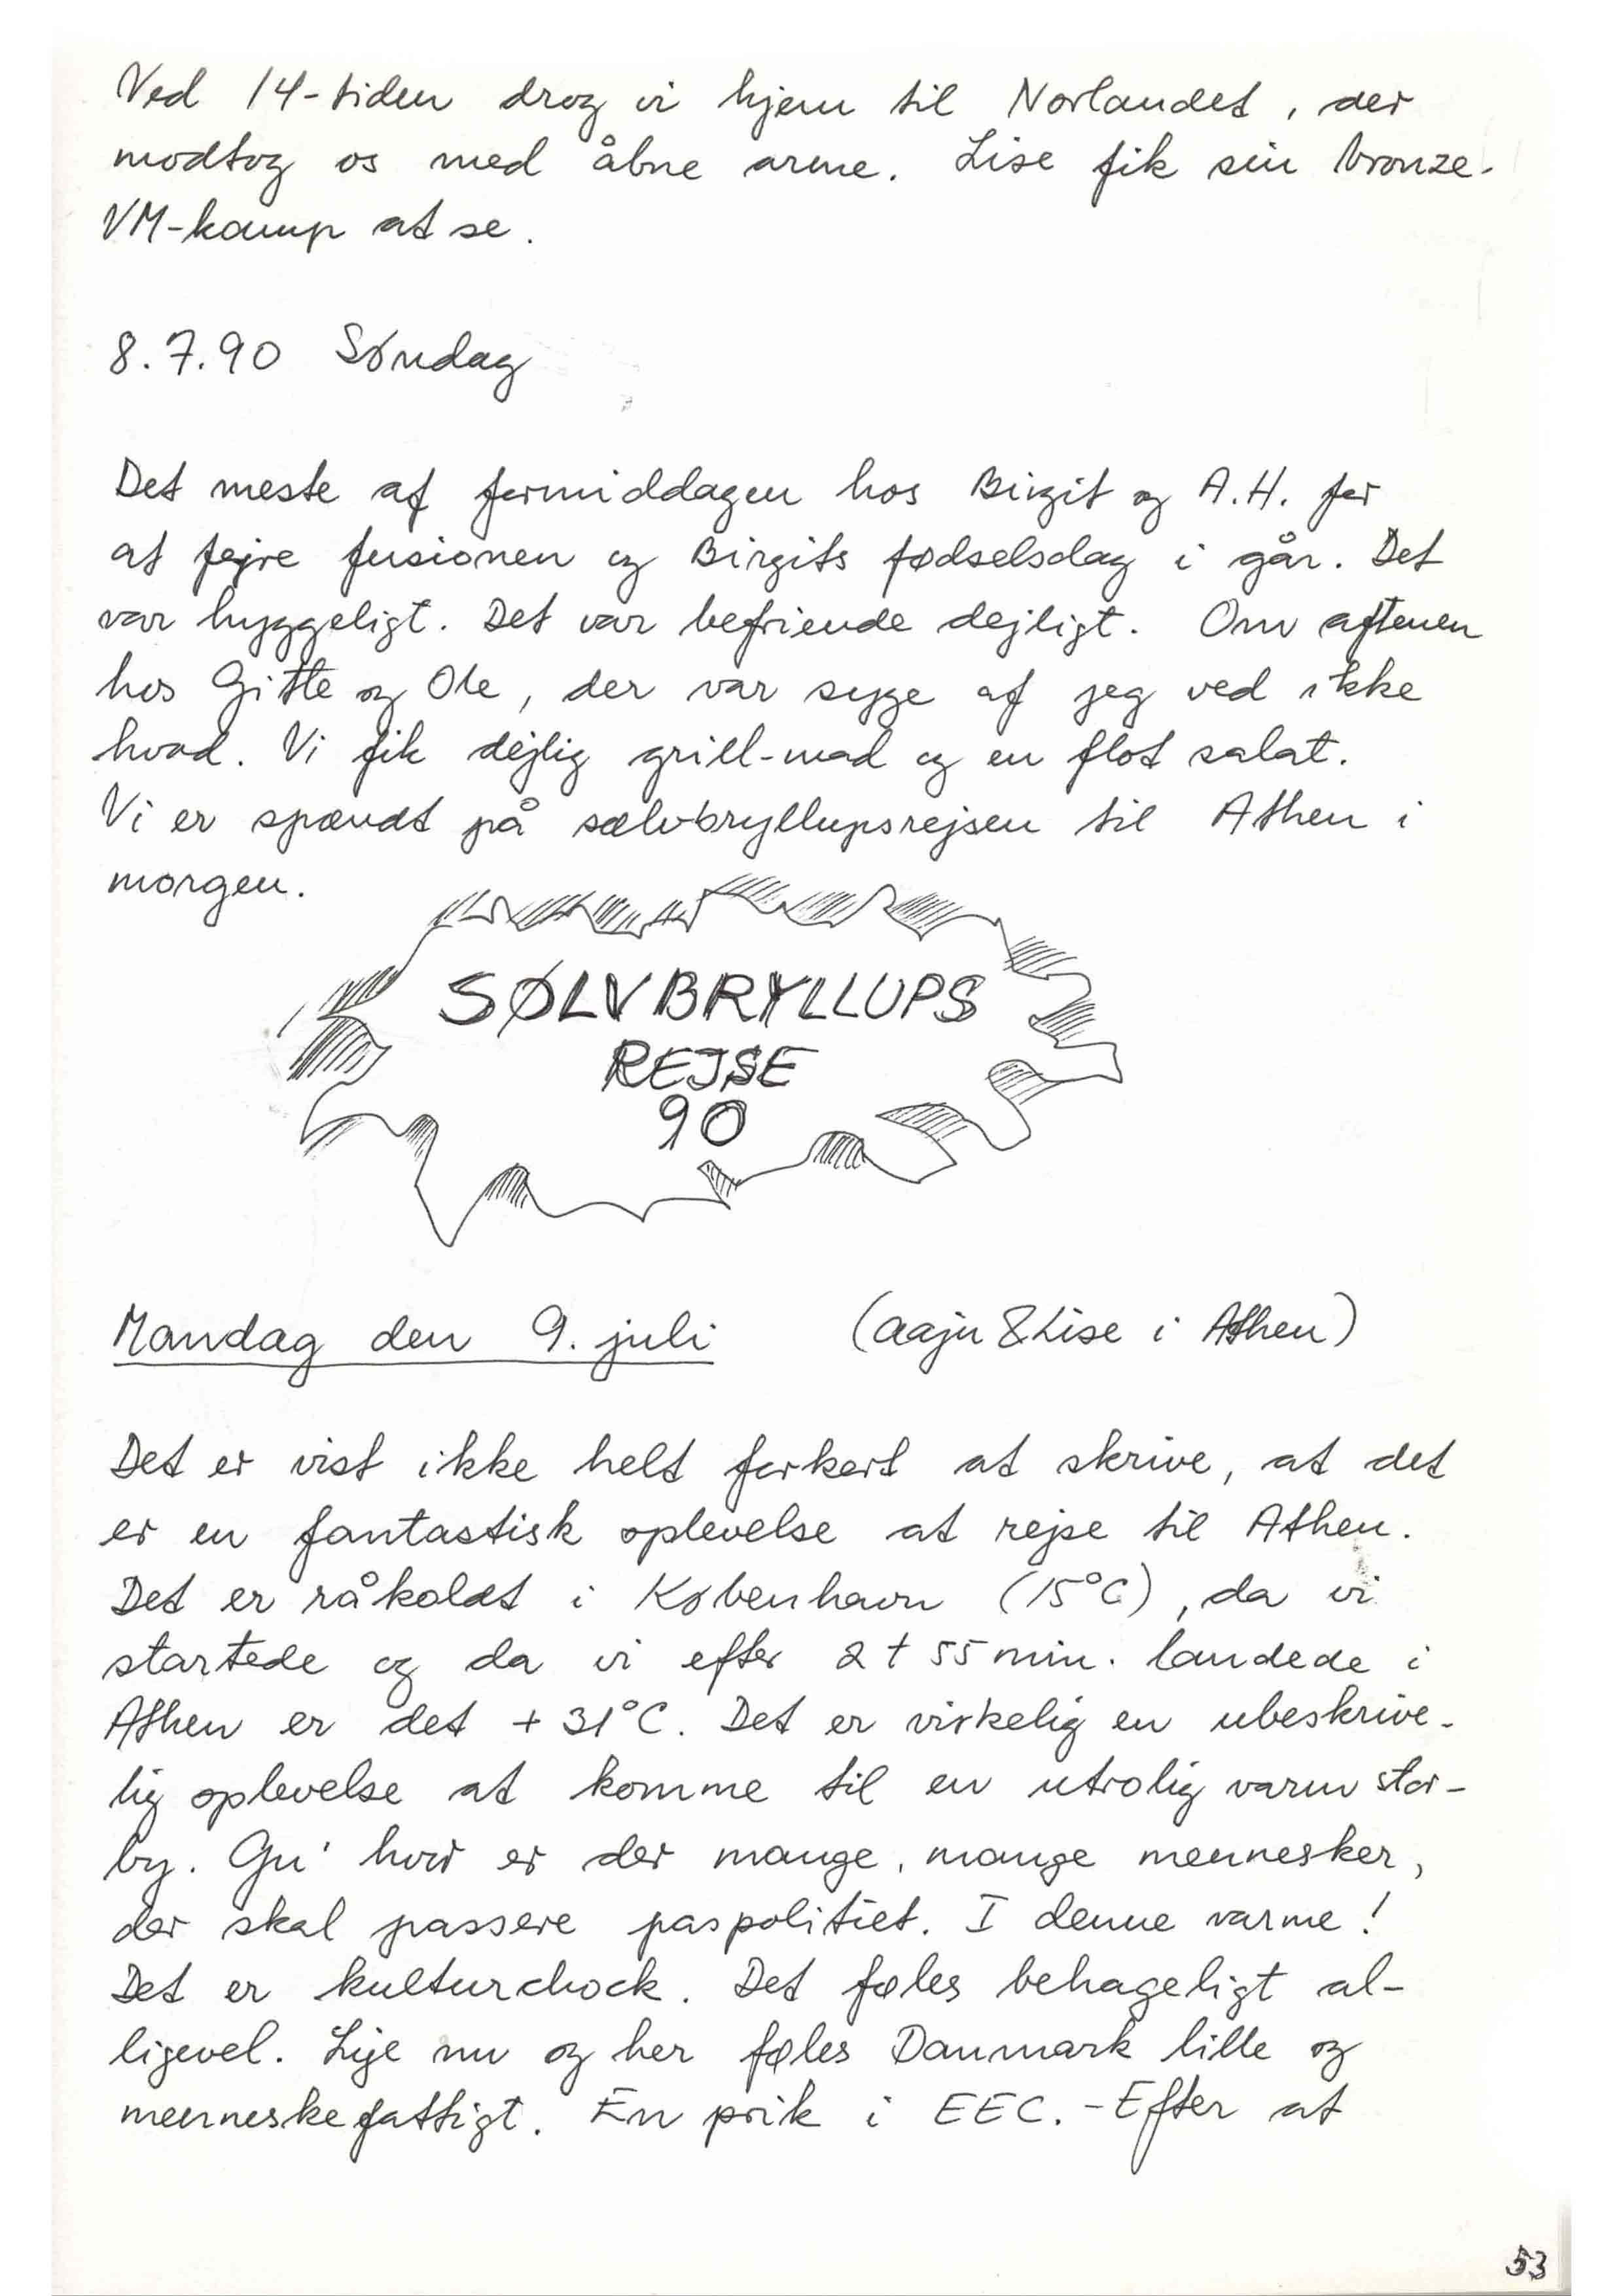 Ved 14-tiden drog vi hjem til Norlandet, der
modtog os med åbne arme. Lise fik sin bronze-
VM-kamp at se.
8.7.90 Søndag
Det meste af formiddagen hos Birgit og A.H. for
at fejre fusionen og Birgits fødselsdag i går. Det
var hyggeligt. Det var befriende dejligt. Om aftenen
hos Gitte og Ole, der var syge af jeg ved ikke
hvad. Vi fik dejlig grill-mad og en flot salat.
Vi er spændt på sølvbryllupsrejsen til Athen i
morgen.
SØLVBRYLLUPS
REJSE
90
Mandag den 9. juli (Aaju & Lise i Athen)
Det er vist ikke helt forkert at skrive, at det
er en fantastisk oplevelse at rejse til Athen.
Det er råkoldt i København (15°C), da vi
startede og da vi efter 2 t 55 min. landede i
Athen er det + 31°C. Det er virkelig en ubeskrive-
lig oplevelse at komme til en utrolig varm stor-
by. Gu' hvor er der mange, mange mennesker,
der skal passere paspolitiet. I denne varme!
Det er kulturchock. Det føles behageligt al-
ligevel. Lige nu og her føles Danmark lille og
menneskefattigt. En prik i EEC. - Efter at
53